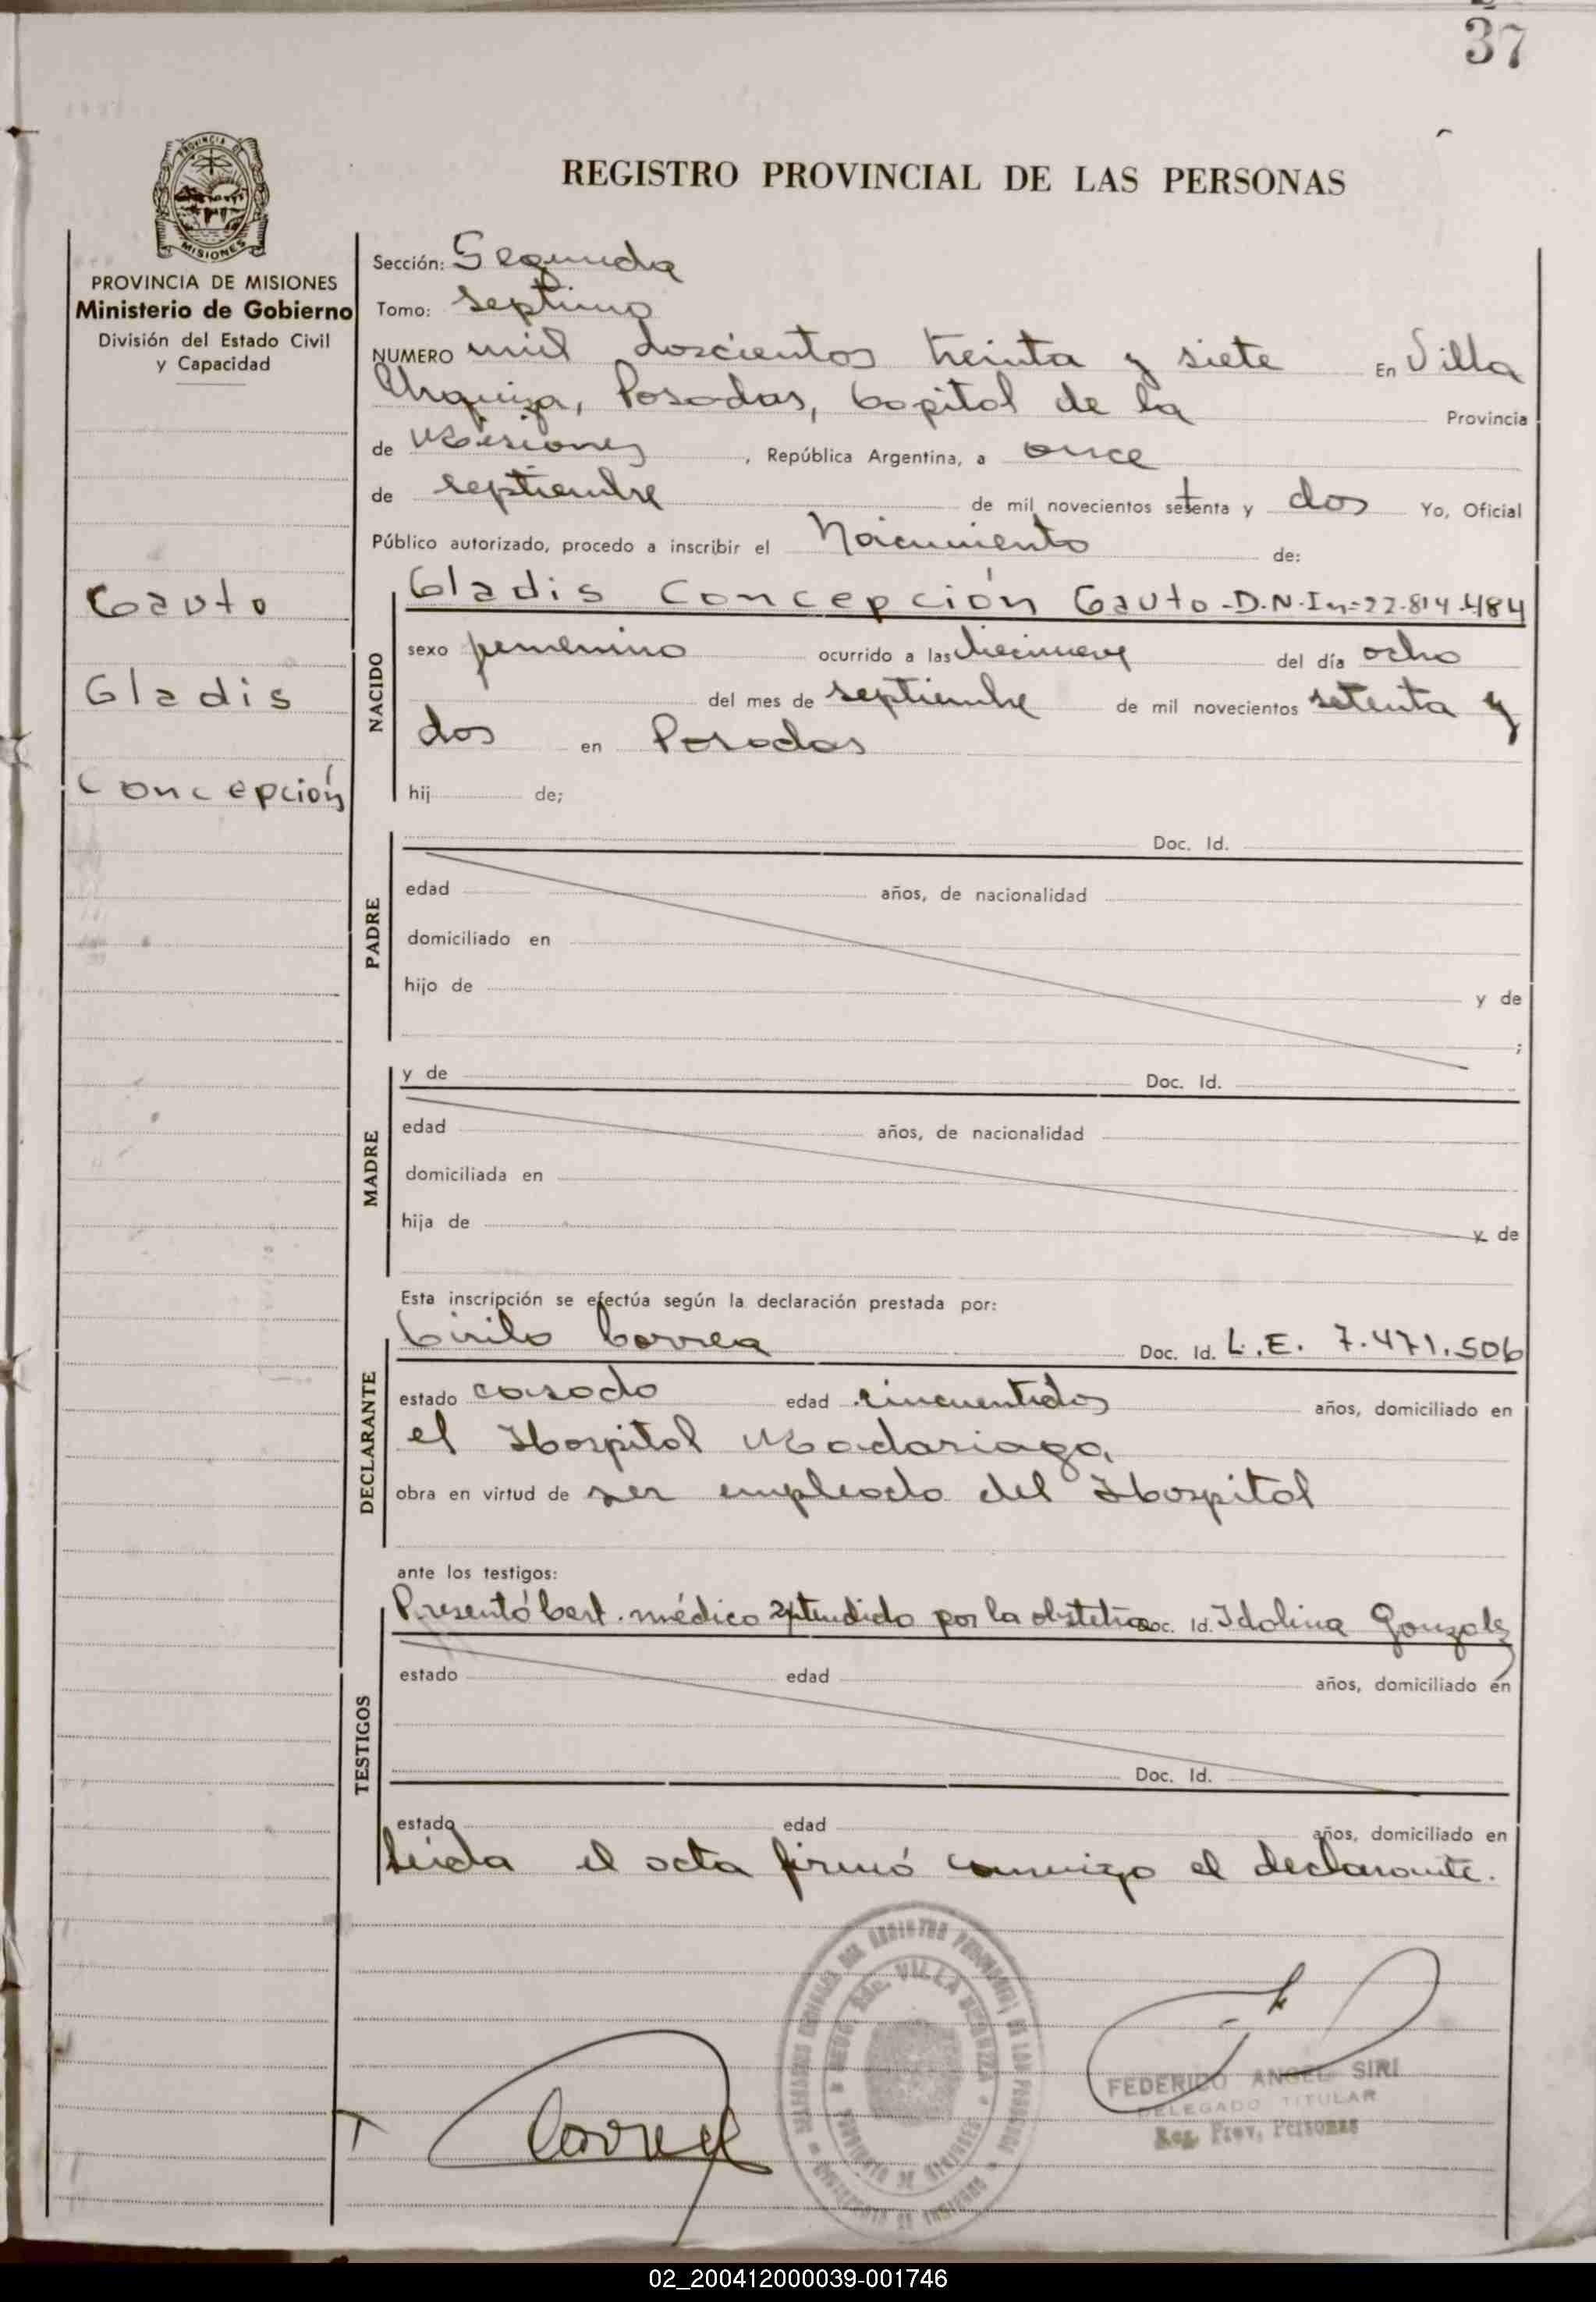 37
REGISTRO PROVINCIAL DE LAS PERSONAS
PROVINCIA DE
MISIONES
PROVINCIA DE MISIONES
Ministerio de Gobierno
División del Estado Civil
y Capacidad
Gauto
Gladis
Concepción
Sección: Segunda
Tomo: septimo
NUMERO mil doscientos treinta y siete En Villa
Urquiza, Posadas, Capital de la Provincia
de Misiones, República Argentina, a once
de septiembre de mil novecientos setenta y dos Yo, Oficial
Público autorizado, procedo a inscribir el Nacimiento de:
NACIDO
Gladis Concepción Gauto-D.N.I nº 22.814.484
sexo femenino ocurrido a las diecinueve del día ocho
del mes de septiembre de mil novecientos setenta y
dos en Posadas
hij de;
PADRE
Doc. Id.
edad años, de nacionalidad
domiciliado en
hijo de y de
;
MADRE
y de Doc. Id.
edad años, de nacionalidad
domiciliada en
hija de y de
Esta inscripción se efectúa según la declaración prestada por:
DECLARANTE
Cirilo Correa Doc. Id. L.E. 7.471.506
estado casado edad cincuentidos años, domiciliado en
el Hospital Madariaga,
obra en virtud de ser empleado del Hospital
ante los testigos:
TESTIGOS
Presentó Cert. médico extendido por la obstetra Doc. Id. Idolina Gonzalez
estado edad años, domiciliado en
Doc. Id.
estado edad años, domiciliado en
Leida el acta firmó conmigo el declarante.
Correa
FEDERICO ANGEL SIRI
DELEGADO TITULAR
Reg. Prov. Personas
02_200412000039-001746